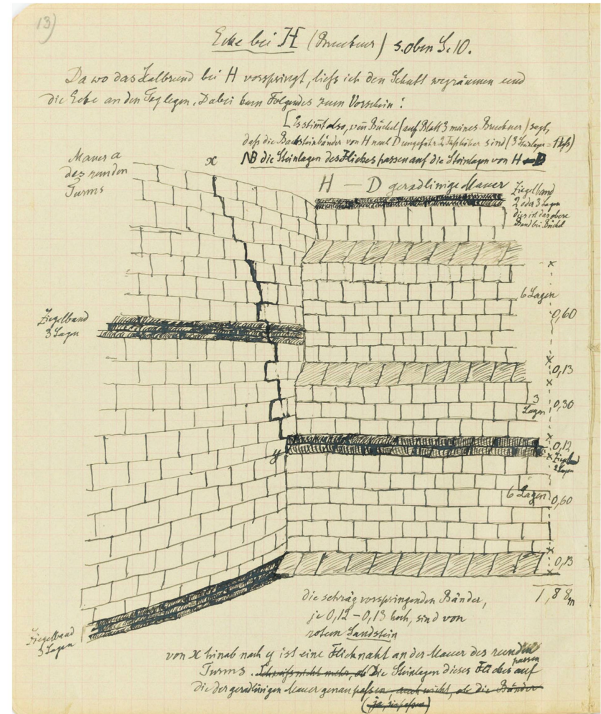 13)
Ecke bei H (Bruckner) s. oben S. 10.
Da wo das Halbrund bei H vorspringt, liess ich den Schutt wegräumen und
die Ecke an den Tag legen. Dabei kam Folgendes zum Vorschein:
[Es stimmt also, von Büchel (auf Blatt 3 meines Bruckner) sagt,
dass die Backsteinbänder von H nach D ungefähr 2 sind (3 Steinlagen =
NB die Steinlagen des Flickes passen auf die Steinlagen von H – D
Mauer a
des runden
Turms
x
H — D geradlinige Mauer
Ziegelband
2 oder 3 Lagen
dies ist das obere
Band bei Büchel
6 Lagen
0,60
Ziegelband
3 Lagen
0,13
3
Lagen
0,30
y
0,12
Ziegelband
2 Lagen
6 Lagen
0,60
0,13
1,88 m
Ziegelband
3 Lagen
die schräg vorspringenden Bänder,
je 0,12–0,13 hoch, sind von
rotem Sandstein
von x hinab nach y ist eine Flicknaht an der Mauer des runden
Turms. die Steinlagen dieses Flickes passen auf
die der geradlinigen Mauer genau passen, auch nicht, ob die Bänder